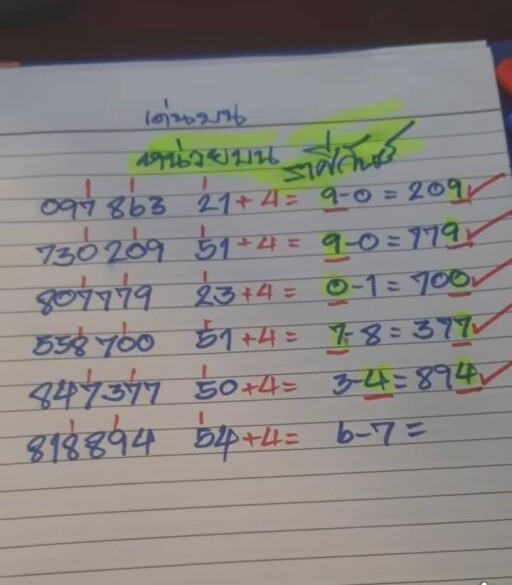 เด่นบน
หน่วยบน ราศีกันย์
097863 21+4= 9-0=209
730209 51+4= 9-0=779
807779 23+4= 0-1=700
558700 51+4= 7-8=377
847377 50+4= 3-4=894
818894 54+4= 6-7=